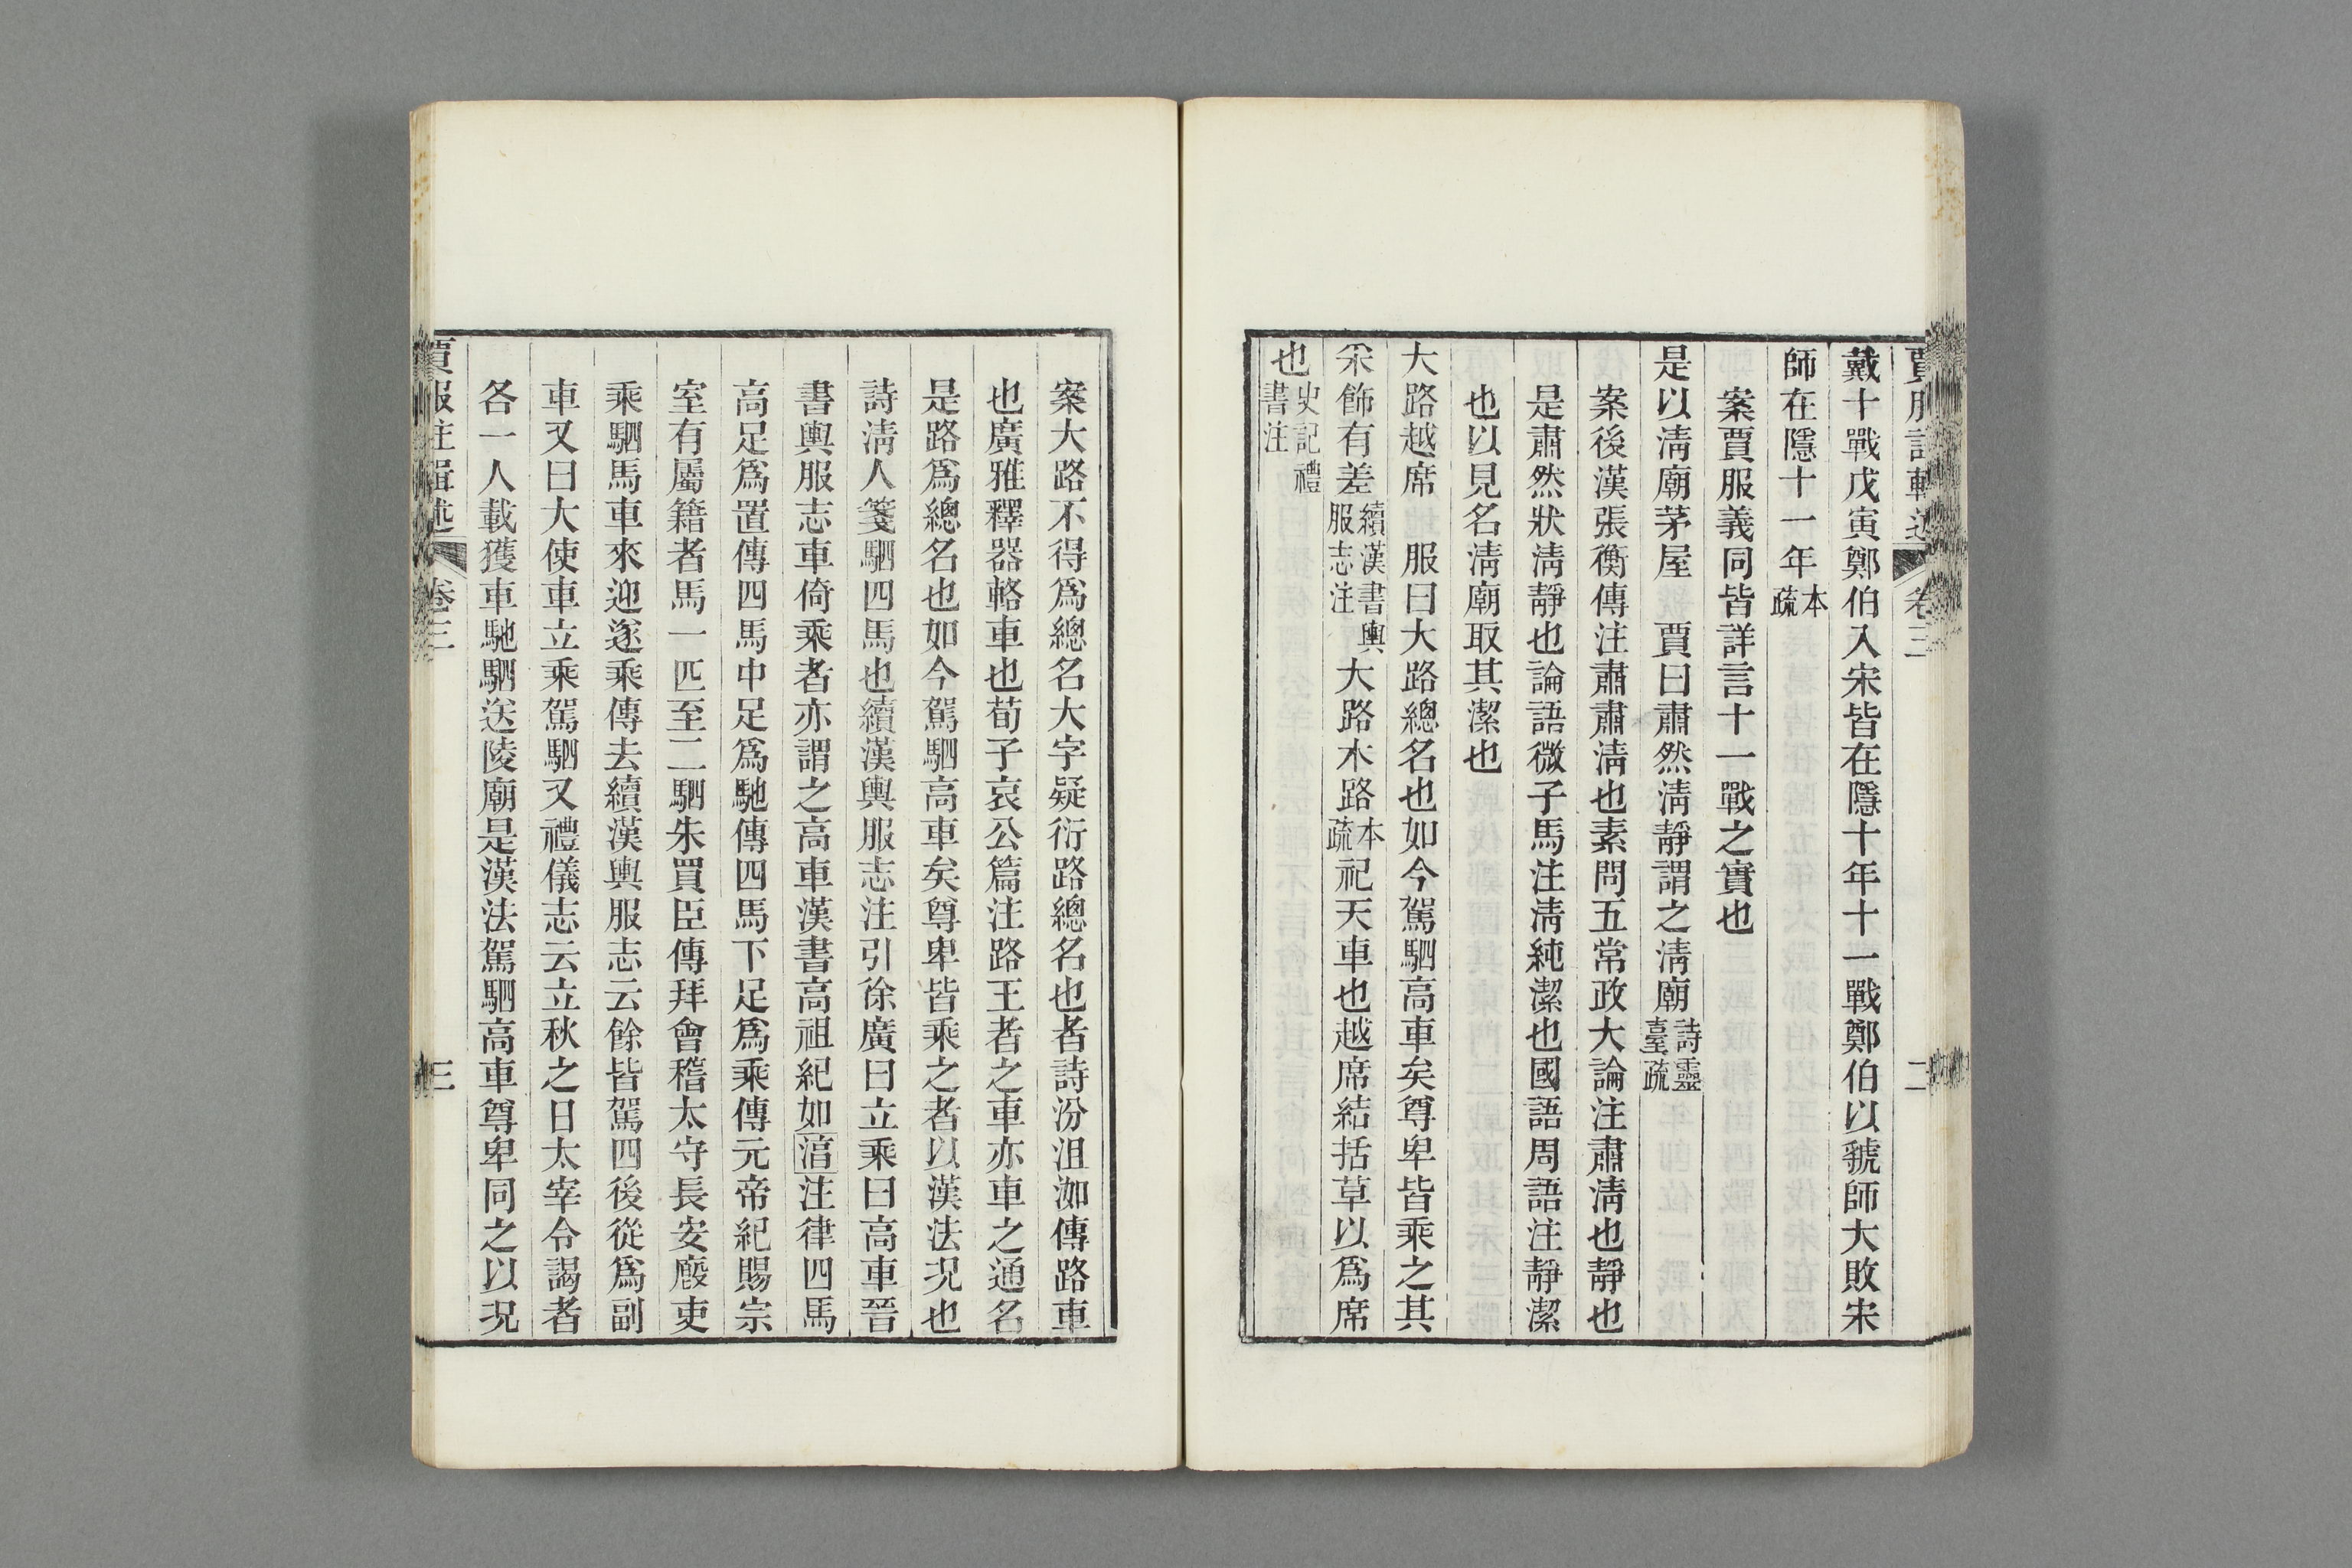 戴十戰戊寅鄭伯入宋皆在隱十年十一戰鄭伯以虢師大敗宋
師在隱十一年本疏
案賈服義同皆詳言十一戰之實也
是以淸廟茅屋　賈曰肅然淸靜謂之淸廟詩靈臺疏
案後漢張衡傳注肅肅淸也素問五常政大論注肅淸也靜也
是肅然狀淸靜也論語微子馬注淸純潔也國語周語注靜潔
也以見名淸廟取其潔也
大路越席　服曰大路總名也如今駕駟高車矣尊卑皆乘之其
采飾有差續漢書輿服志注大路木路本疏祀天車也越席結括草以爲席
也史記禮書注
賈服注輯述　卷三　二
案大路不得爲總名大字疑衍路總名也者詩汾沮洳傳路車
也廣雅釋器輅車也荀子哀公篇注路王者之車亦車之通名
是路爲總名也如今駕駟高車矣尊卑皆乘之者以漢法況也
詩淸人箋駟四馬也續漢輿服志注引徐廣曰立乘曰高車晉
書輿服志車倚乘者亦謂之高車漢書高祖紀如淳注律四馬
高足爲置傳四馬中足爲馳傳四馬下足爲乘傳元帝紀賜宗
室有屬籍者馬一匹至二駟朱買臣傳拜會稽太守長安廄吏
乘駟馬車來迎遂乘傳去續漢輿服志云餘皆駕四後從爲副
車又曰大使車立乘駕駟又禮儀志云立秋之日太宰令謁者
各一人載獲車馳駟送陵廟是漢法駕駟高車尊卑同之以況
賈服注輯述　卷三　三